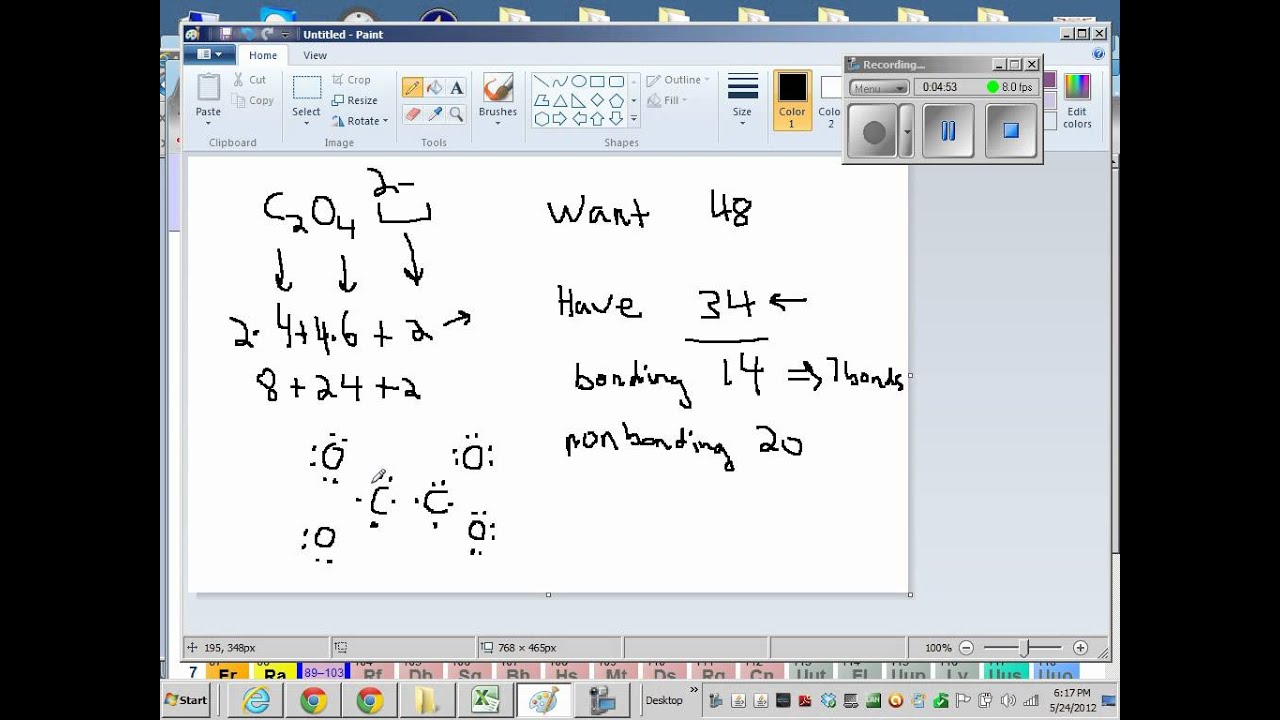 Untitled - Paint
Home View
Recording...
Menu 0:04:53 8.0 fps
Paste Cut Copy
Select Crop Resize Rotate
Brushes
Outline Fill
Size
Color 1
Colo 2
Edit colors
Clipboard Image Tools Shapes
C₂O₄ 2-
2·4+4·6+2
8+24+2
:O :O:
·C· ·C·
:O O:
Want 48
Have 34 ←
bonding 14 ⇒ 7 bonds
nonbonding 20
195, 348px 768 × 465px 100%
7 Fr Ra 89–103 Rf Db Sg Bh Hs Mt Ds Rg Cn Uut Fl Uup Lv Uus Uuo
Start Desktop 6:17 PM
5/24/2012